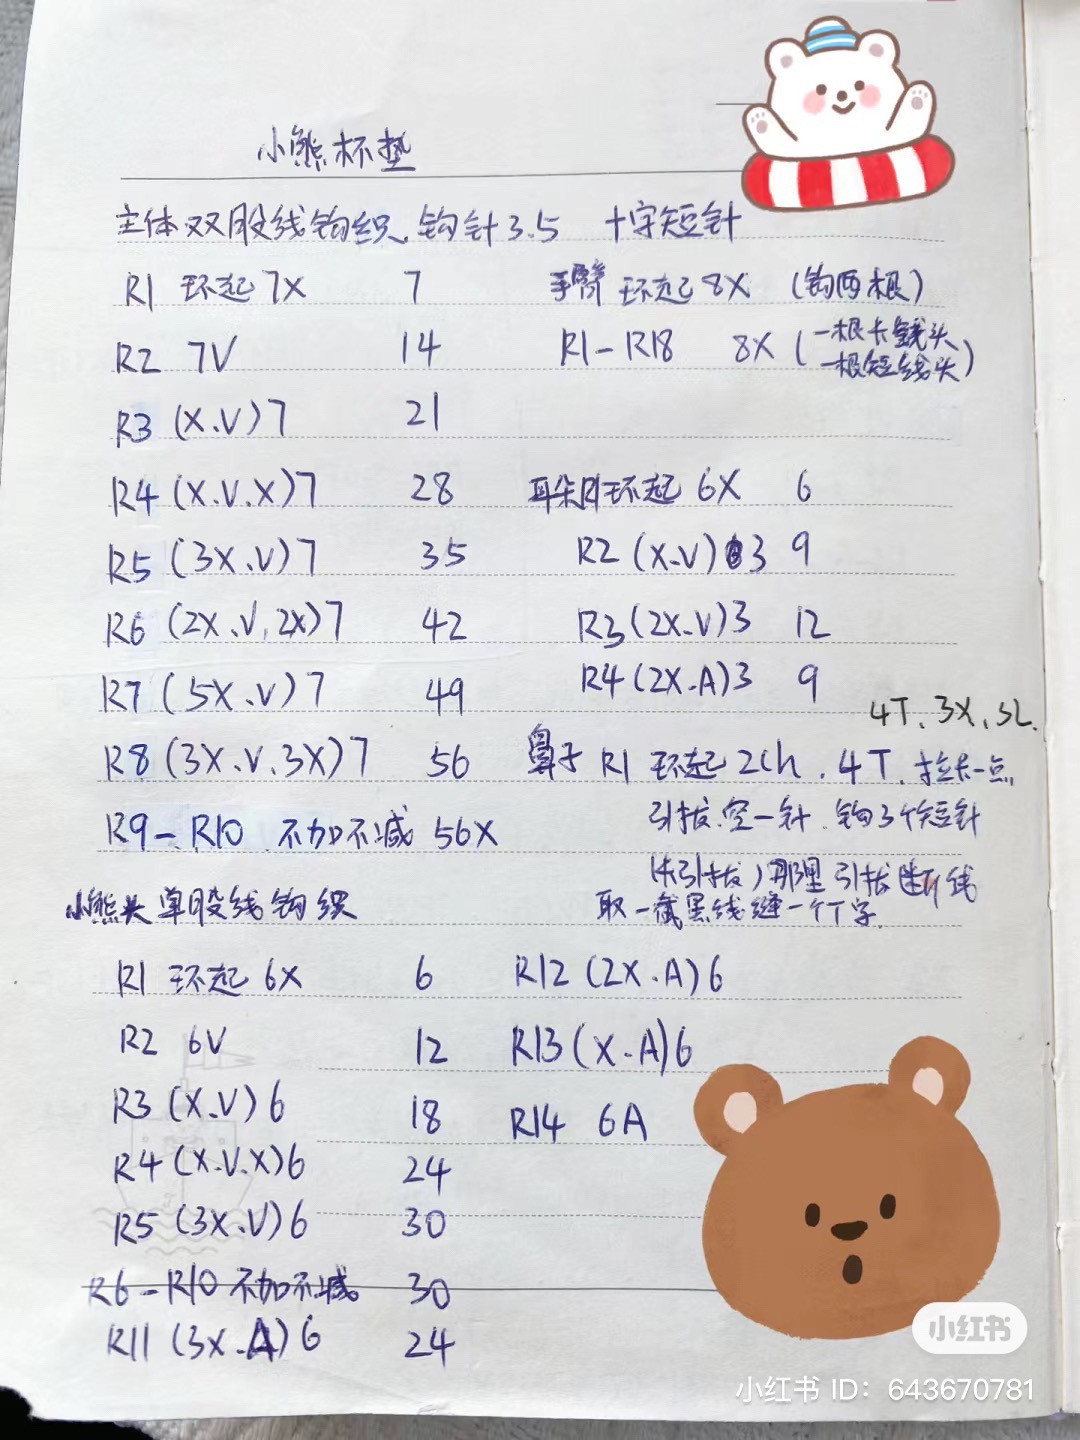 小熊杯垫
主体双股线钩织.钩针3.5 十字短针
R1 环起7X 7
R2 7V 14
R3 (X.V)7 21
R4 (X.V.X)7 28
R5 (3X.V)7 35
R6 (2X.V.2X)7 42
R7 (5X.V)7 49
R8 (3X.V.3X)7 56
R9-R10 不加不减 56X
手臂 环起8X (钩两根)
R1-R18 8X (一根长线头
一根短线头)
耳朵R1环起 6X 6
R2 (X.V)3 9
R3 (2X.V)3 12
R4 (2X.A)3 9
4T.3X.SL.
鼻子 R1 环起2ch.4T.拉长一点,
引拔.空一针.钩3个短针
(未引拔)那里引拔断线
取一截黑线缝一个丁字.
小熊头单股线钩织
R1 环起6X 6
R2 6V 12
R3 (X.V)6 18
R4 (X.V.X)6 24
R5 (3X.V)6 30
R6-R10 不加不减 30
R11 (3X.A)6 24
R12 (2X.A)6
R13 (X.A)6
R14 6A
小红书
小红书 ID: 643670781